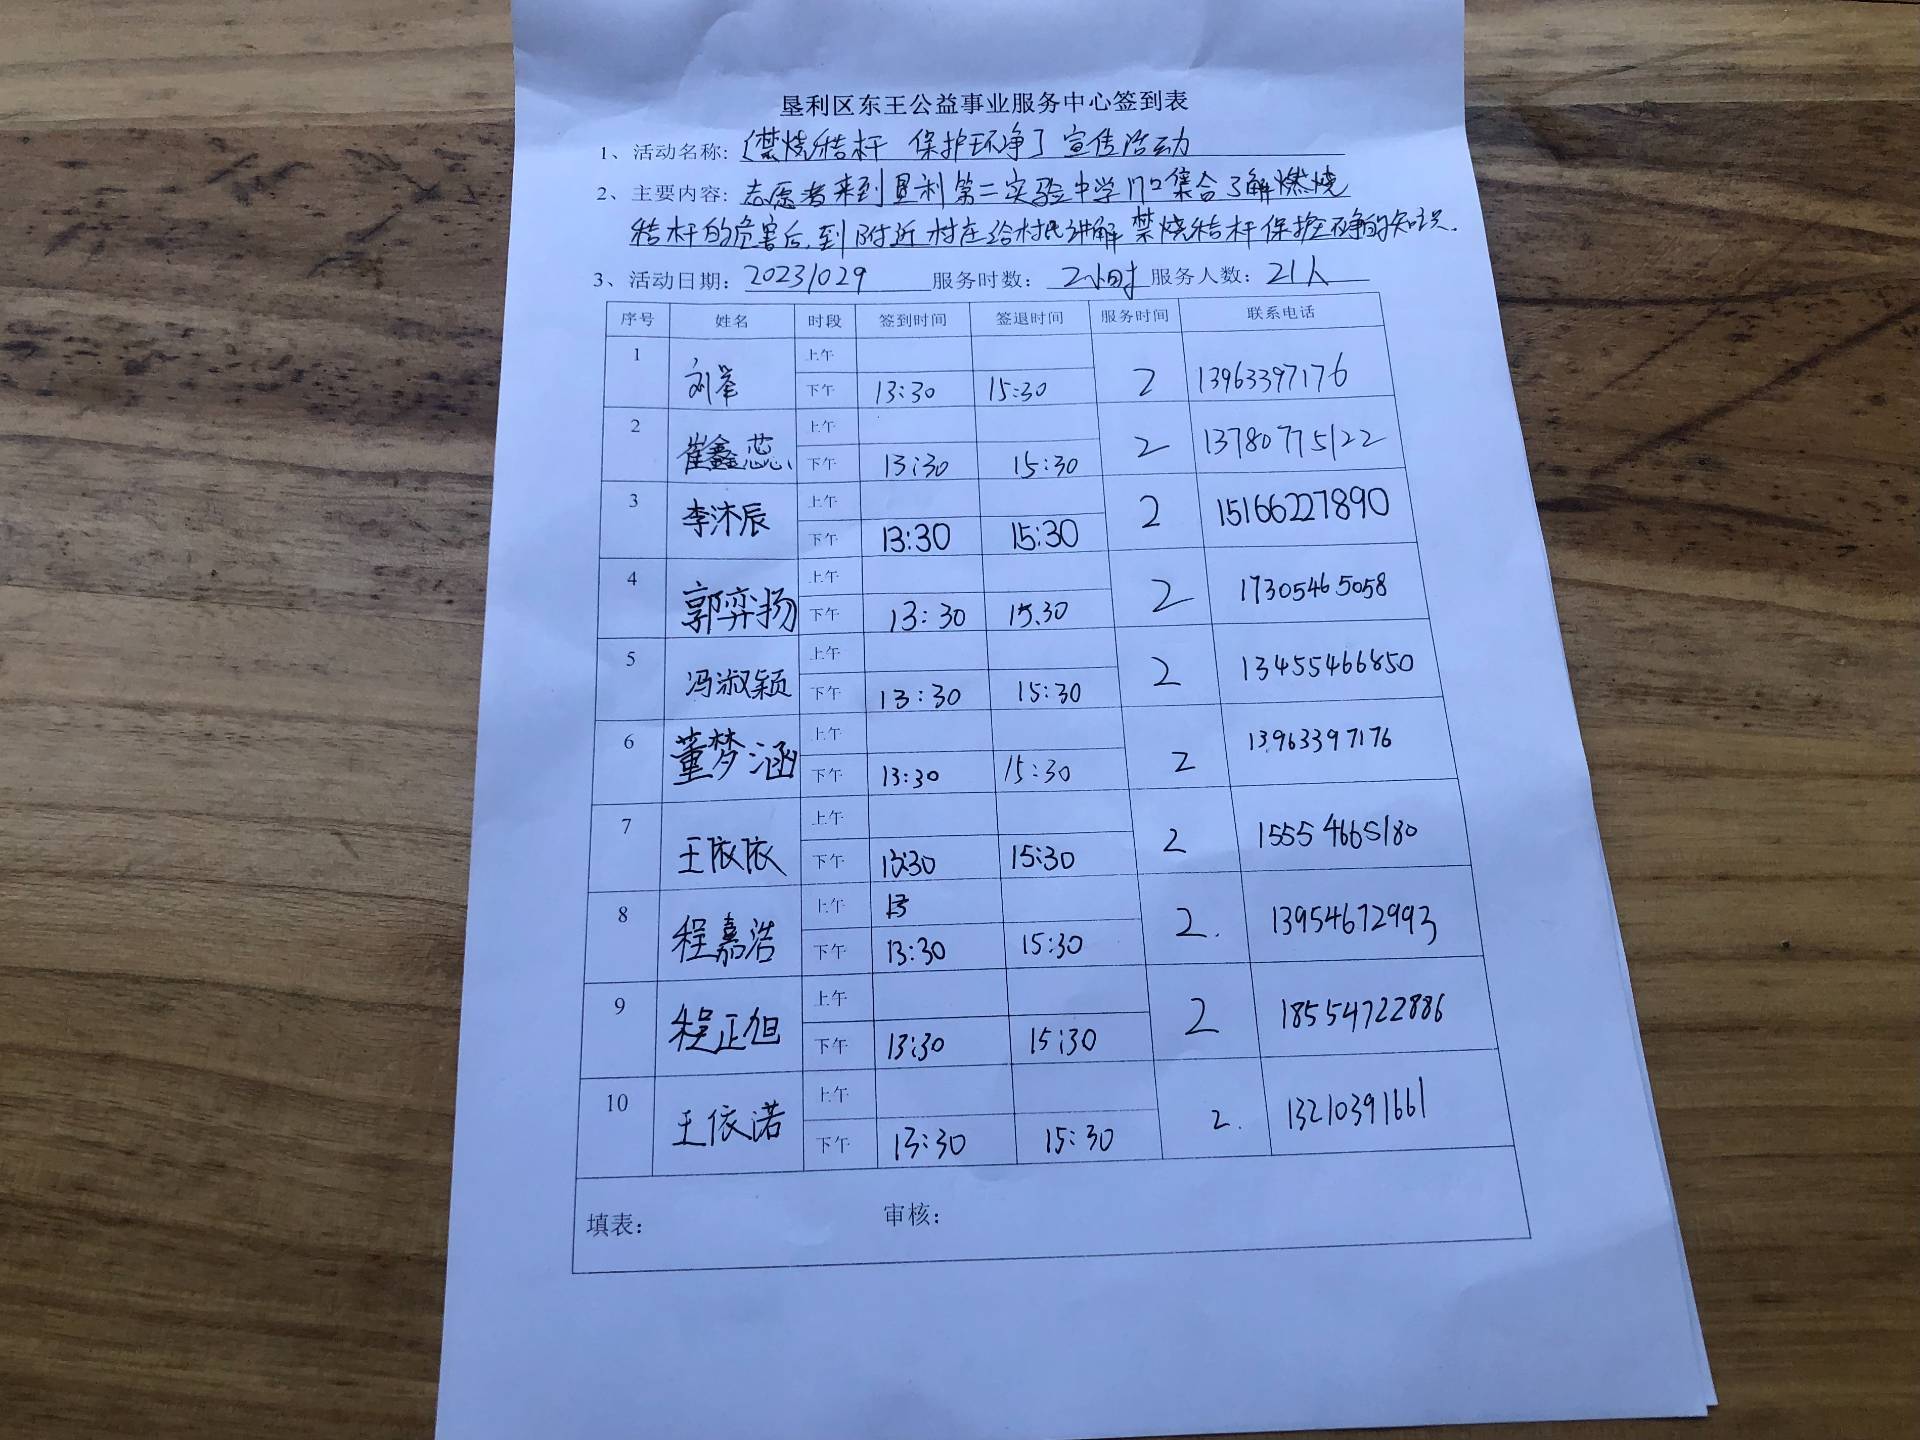 垦利区东王公益事业服务中心签到表
1、活动名称: 《禁烧秸杆 保护环净》宣传活动
2、主要内容: 志愿者来到垦利第二实验中学门口集合了解燃烧
秸杆的危害后,到附近村庄给村民讲解禁烧秸杆保护环净的知识.
3、活动日期: 20231029 服务时数: 2小时 服务人数: 21人
序号 姓名 时段 签到时间 签退时间 服务时间 联系电话
1 刘峯 上午
下午 13:30 15:30 2 13963397176
2 崔鑫蕊 上午
下午 13:30 15:30 2 13780775122
3 李沐辰 上午
下午 13:30 15:30 2 15166227890
4 郭弈扬 上午
下午 13:30 15.30 2 17305465058
5 冯淑颖 上午
下午 13:30 15:30 2 13455466850
6 董梦涵 上午
下午 13:30 15:30 2 13963397176
7 王依依 上午
下午 13:30 15:30 2 15554665180
8 程嘉浩 上午
下午 13:30 15:30 2. 13954672993
9 程正旭 上午
下午 13:30 15:30 2 18554722886
10 王依诺 上午
下午 13:30 15:30 2. 13210391661
填表: 审核: